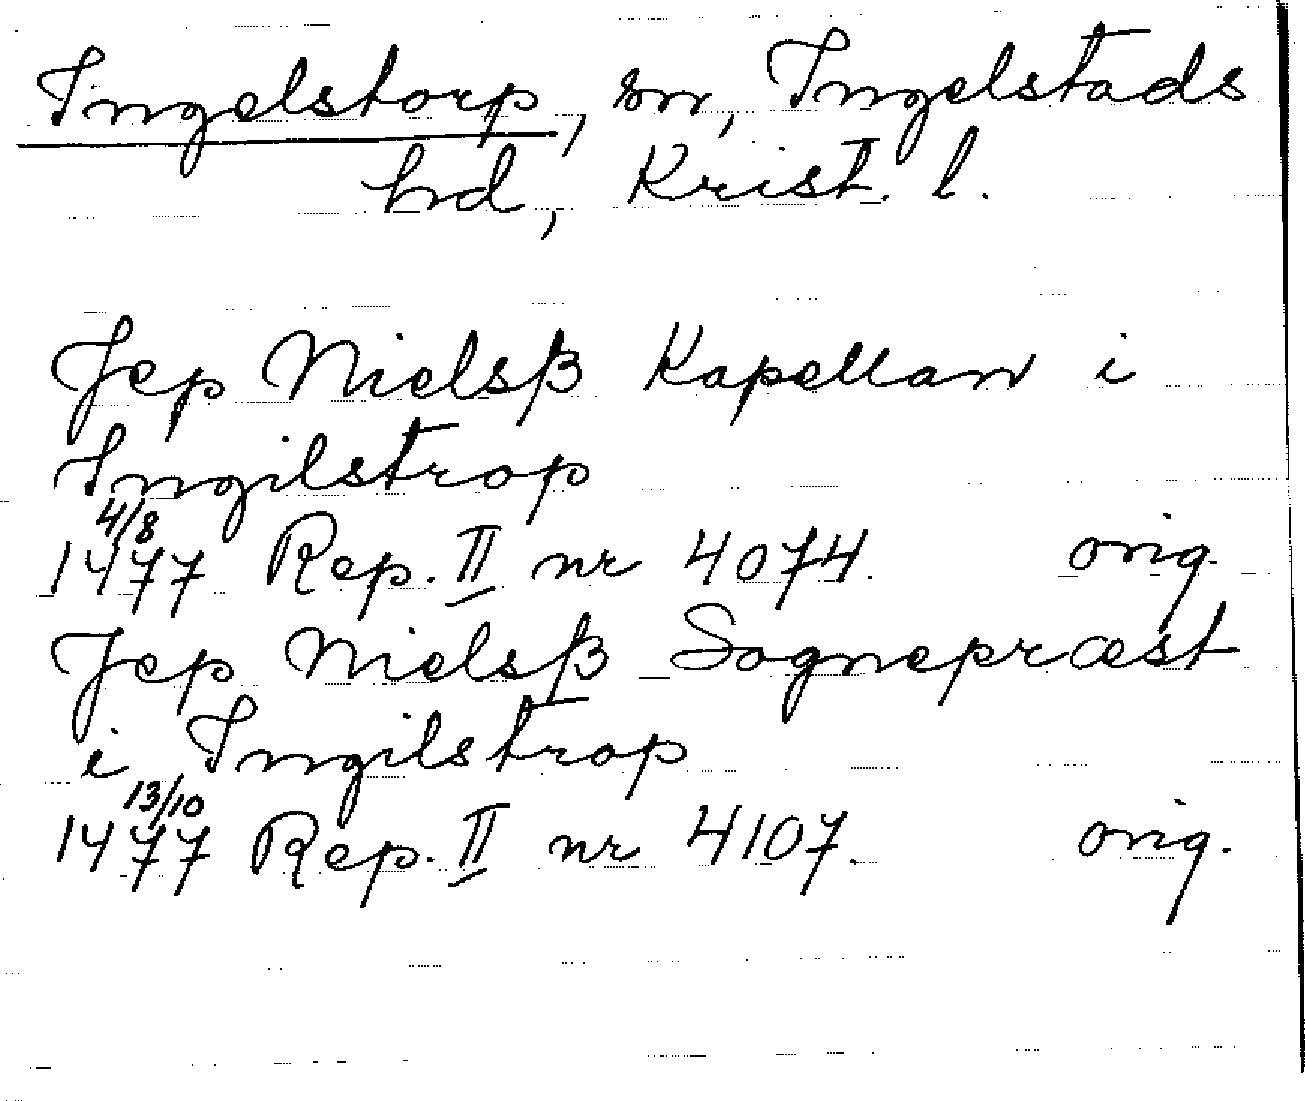 Ingelstorp, sn, Ingelstads
hd, Krist. l.
Jep Nielsß Kapellan i
Ingilstrop
4/8
1477 Rep. II nr 4074. orig.
Jep Nielsß Sognepræst
i Ingilstrop
13/10
1477 Rep. II nr 4107. orig.